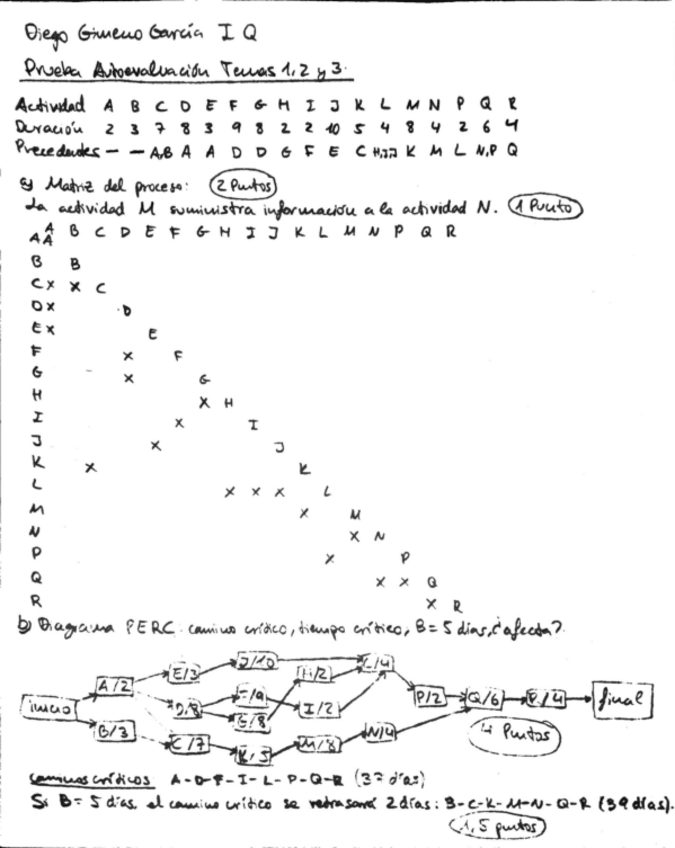 Diego Gimeno García I Q
Prueba Autoevaluación Temas 1, 2 y 3.
Actividad A B C D E F G H I J K L M N P Q R
Duración 2 3 7 8 3 9 8 2 2 10 5 4 8 4 2 6 4
Precedentes - - A,B A A D D G F E C H,I,J K M L N,P Q
a) Matriz del proceso: 2 Puntos
La actividad M suministra información a la actividad N. 1 Punto
A B C D E F G H I J K L M N P Q R
A A
B B
C x x C
D x D
E x E
F x F
G x G
H x H
I x I
J x J
K x K
L x x x L
M x M
N x N
P x P
Q x x Q
R x R
b) Diagrama PERC. camino crítico, tiempo crítico, B = 5 días, ¿afecta?
E/3 J/10 L/4
A/2 H/2
inicio D/8 F/9 I/2 P/2 Q/6 R/4 final
B/3 G/8
C/7 K/5 M/8 N/4 4 Puntos
caminos críticos A-D-F-I-L-P-Q-R (37 días)
Si B = 5 días el camino crítico se retrasará 2 días: B-C-K-M-N-Q-R (39 días).
1,5 puntos